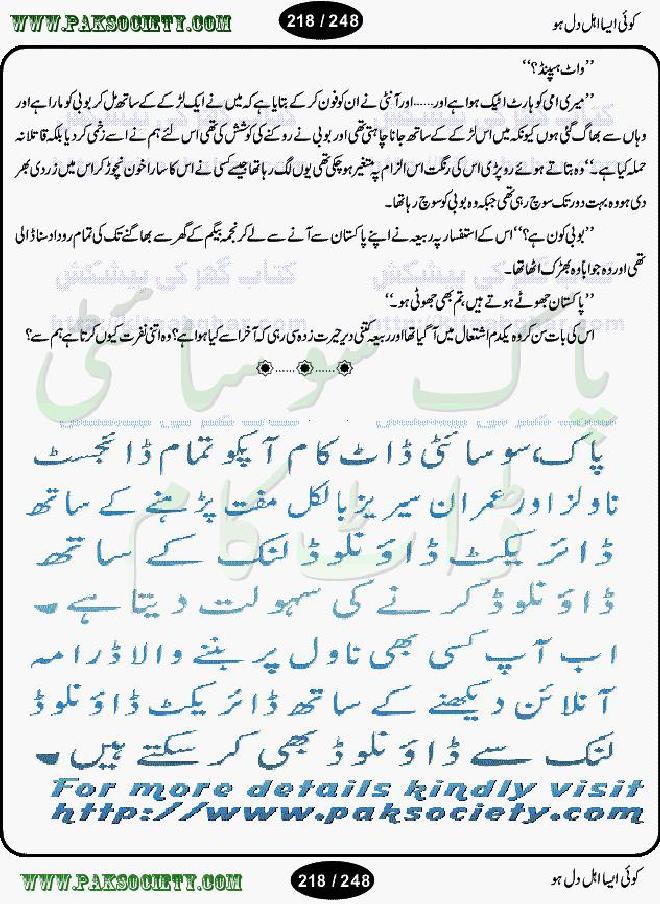 WWW.PAKSOCIETY.COM 218 / 248 کوئی ایسا اہل دل ہو
’’واٹ ہیپنڈ؟‘‘
’’میری امی کو ہارٹ اٹیک ہوا ہے اور……اور آنٹی نے ان کو فون کر کے بتایا ہے کہ میں نے ایک لڑکے کے ساتھ مل کر بوبی کو مارا ہے اور
وہاں سے بھاگ گئی ہوں کیونکہ میں اس لڑکے کے ساتھ جانا چاہتی تھی اور بوبی نے روکنے کی کوشش کی تھی اس لئے ہم نے اسے زخمی کر دیا بلکہ قاتلانہ
حملہ کیا ہے۔‘‘ وہ بتاتے ہوئے رو پڑی اس کی رنگت اس الزام پہ متغیر ہو چکی تھی یوں لگ رہا تھا جیسے کسی نے اس کا سارا خون نچوڑ کر اس میں زردی بھر
دی ہو وہ بہت دور تک سوچ رہی تھی جبکہ وہ بوبی کو سوچ رہا تھا۔
’’بوبی کون ہے؟‘‘ اس کے استفسار پہ ربیعہ نے اپنے پاکستان سے آنے سے لے کر نجمہ بیگم کے گھر سے بھاگنے تک کی تمام روداد سنا ڈالی
تھی اور وہ جواباً وہ بھڑک اٹھا تھا۔
’’پاکستان جھوٹے ہوتے ہیں، تم بھی جھوٹی ہو۔‘‘
اس کی بات سن کر وہ یکدم اشتعال میں آ گیا تھا اور ربیعہ کتنی دیر حیرت زدہ سی رہی کہ آخر اسے کیا ہوا ہے؟ وہ اتنی نفرت کیوں کرتا ہے ہم سے؟
پاک سوسائٹی ڈاٹ کام آپکو تمام ڈائجسٹ
ناولز اور عمران سیریز بالکل مفت پڑھنے کے ساتھ
ڈائریکٹ ڈاؤنلوڈ لنک کے ساتھ
ڈاؤنلوڈ کرنے کی سہولت دیتا ہے۔
اب آپ کسی بھی ناول پر بننے والا ڈرامہ
آنلائن دیکھنے کے ساتھ ڈائریکٹ ڈاؤنلوڈ
لنک سے ڈاؤنلوڈ بھی کر سکتے ہیں۔
For more details kindly visit
http://www.paksociety.com
WWW.PAKSOCIETY.COM 218 / 248 کوئی ایسا اہل دل ہو